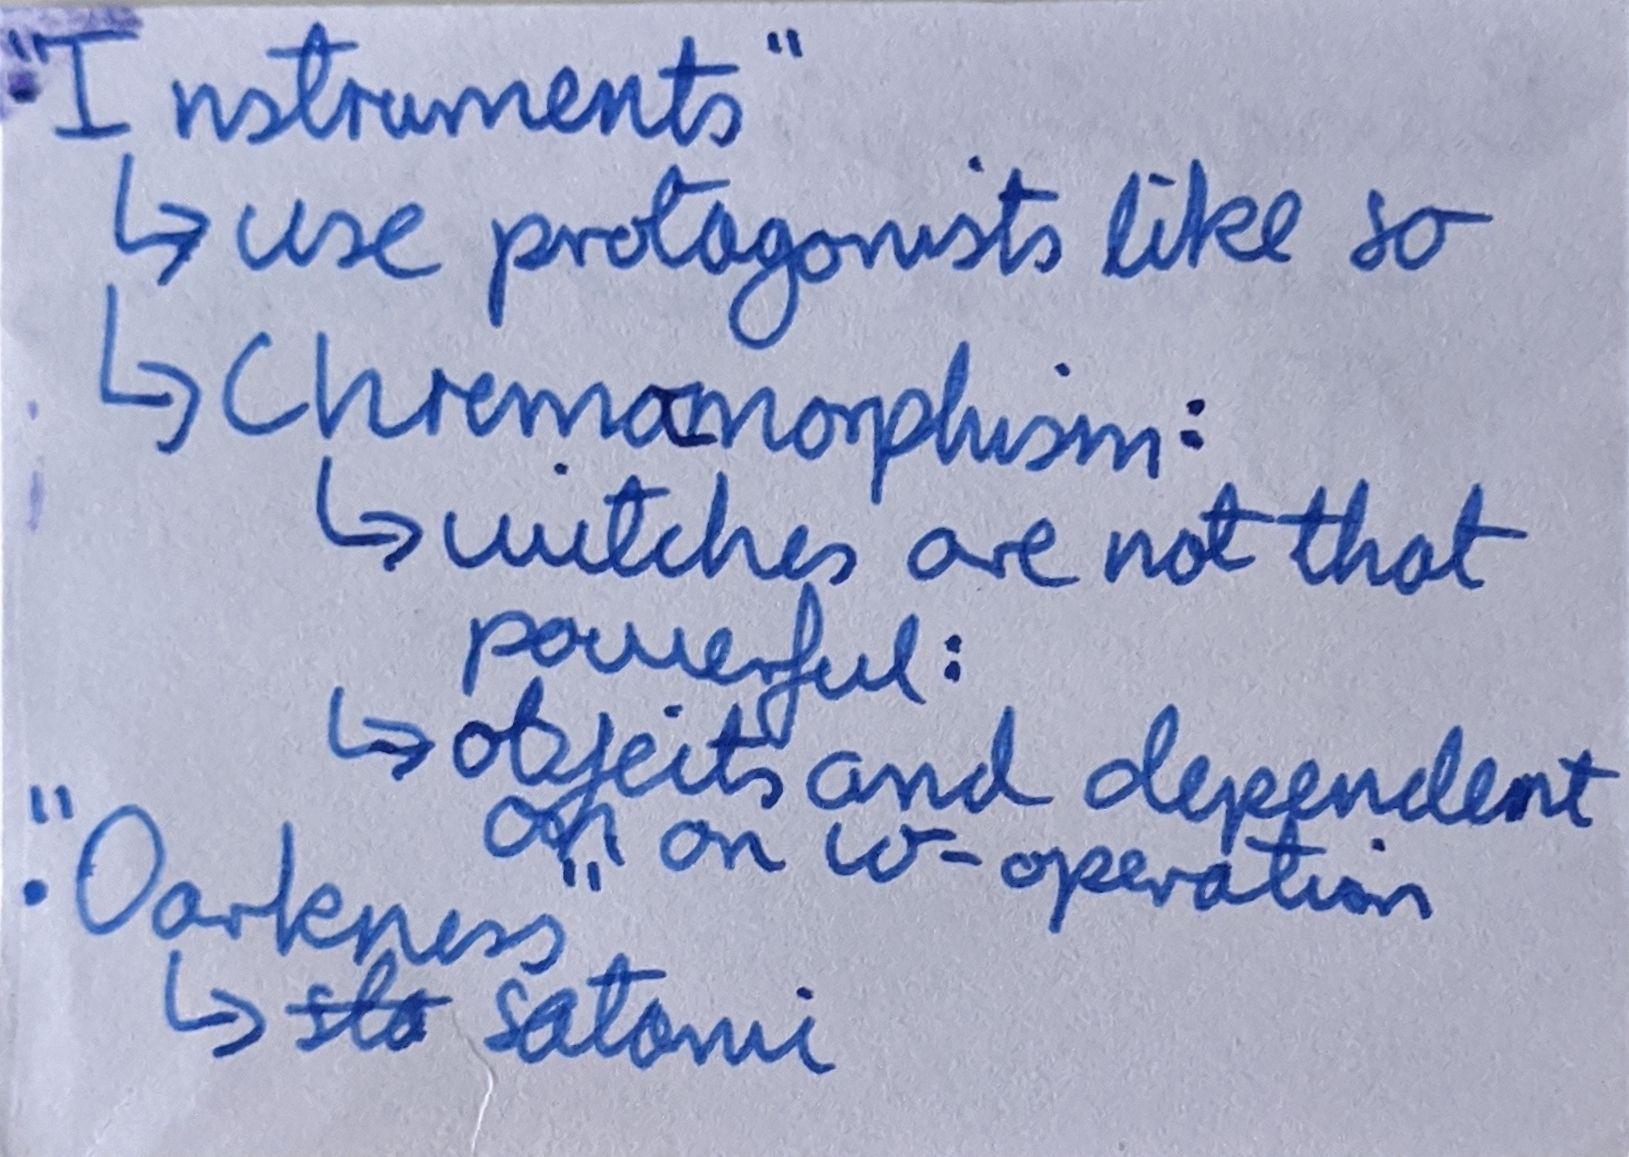 • "Instruments"
↳ use protagonists like so
↳ Chremamorphism:
↳ witches are not that
powerful:
↳ objects and dependent
on co-operation
• "Darkness"
↳ satami